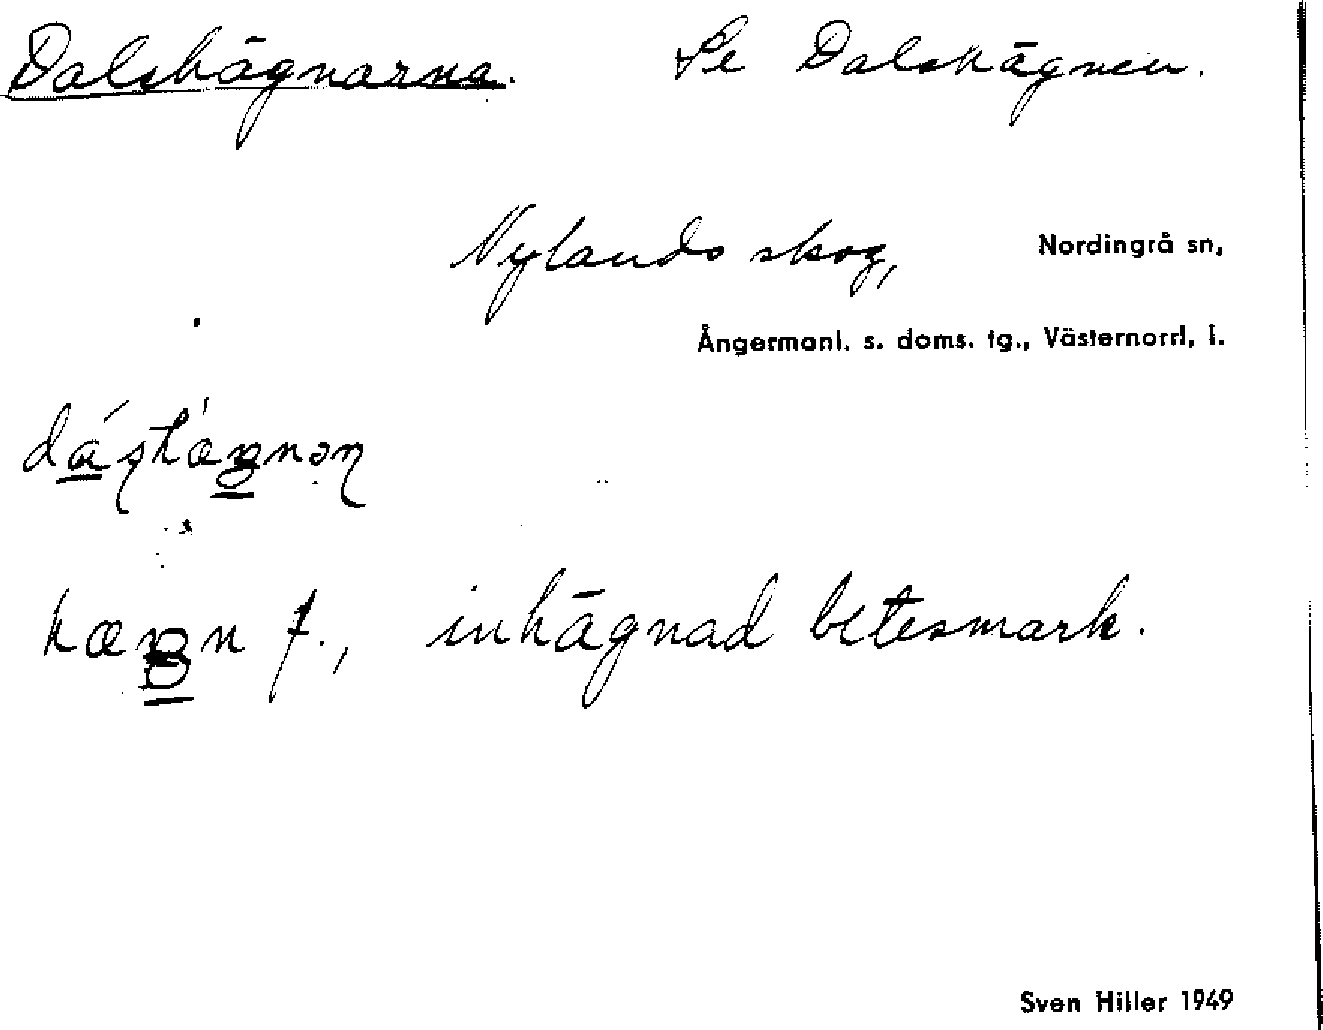 Dalshägnarna. Se Dalshägnen.
Nylands skog, Nordingrå sn,
Ångermanl. s. doms. tg., Västernorrl. l.
hægn f., inhägnad betesmark.
Sven Hiller 1949